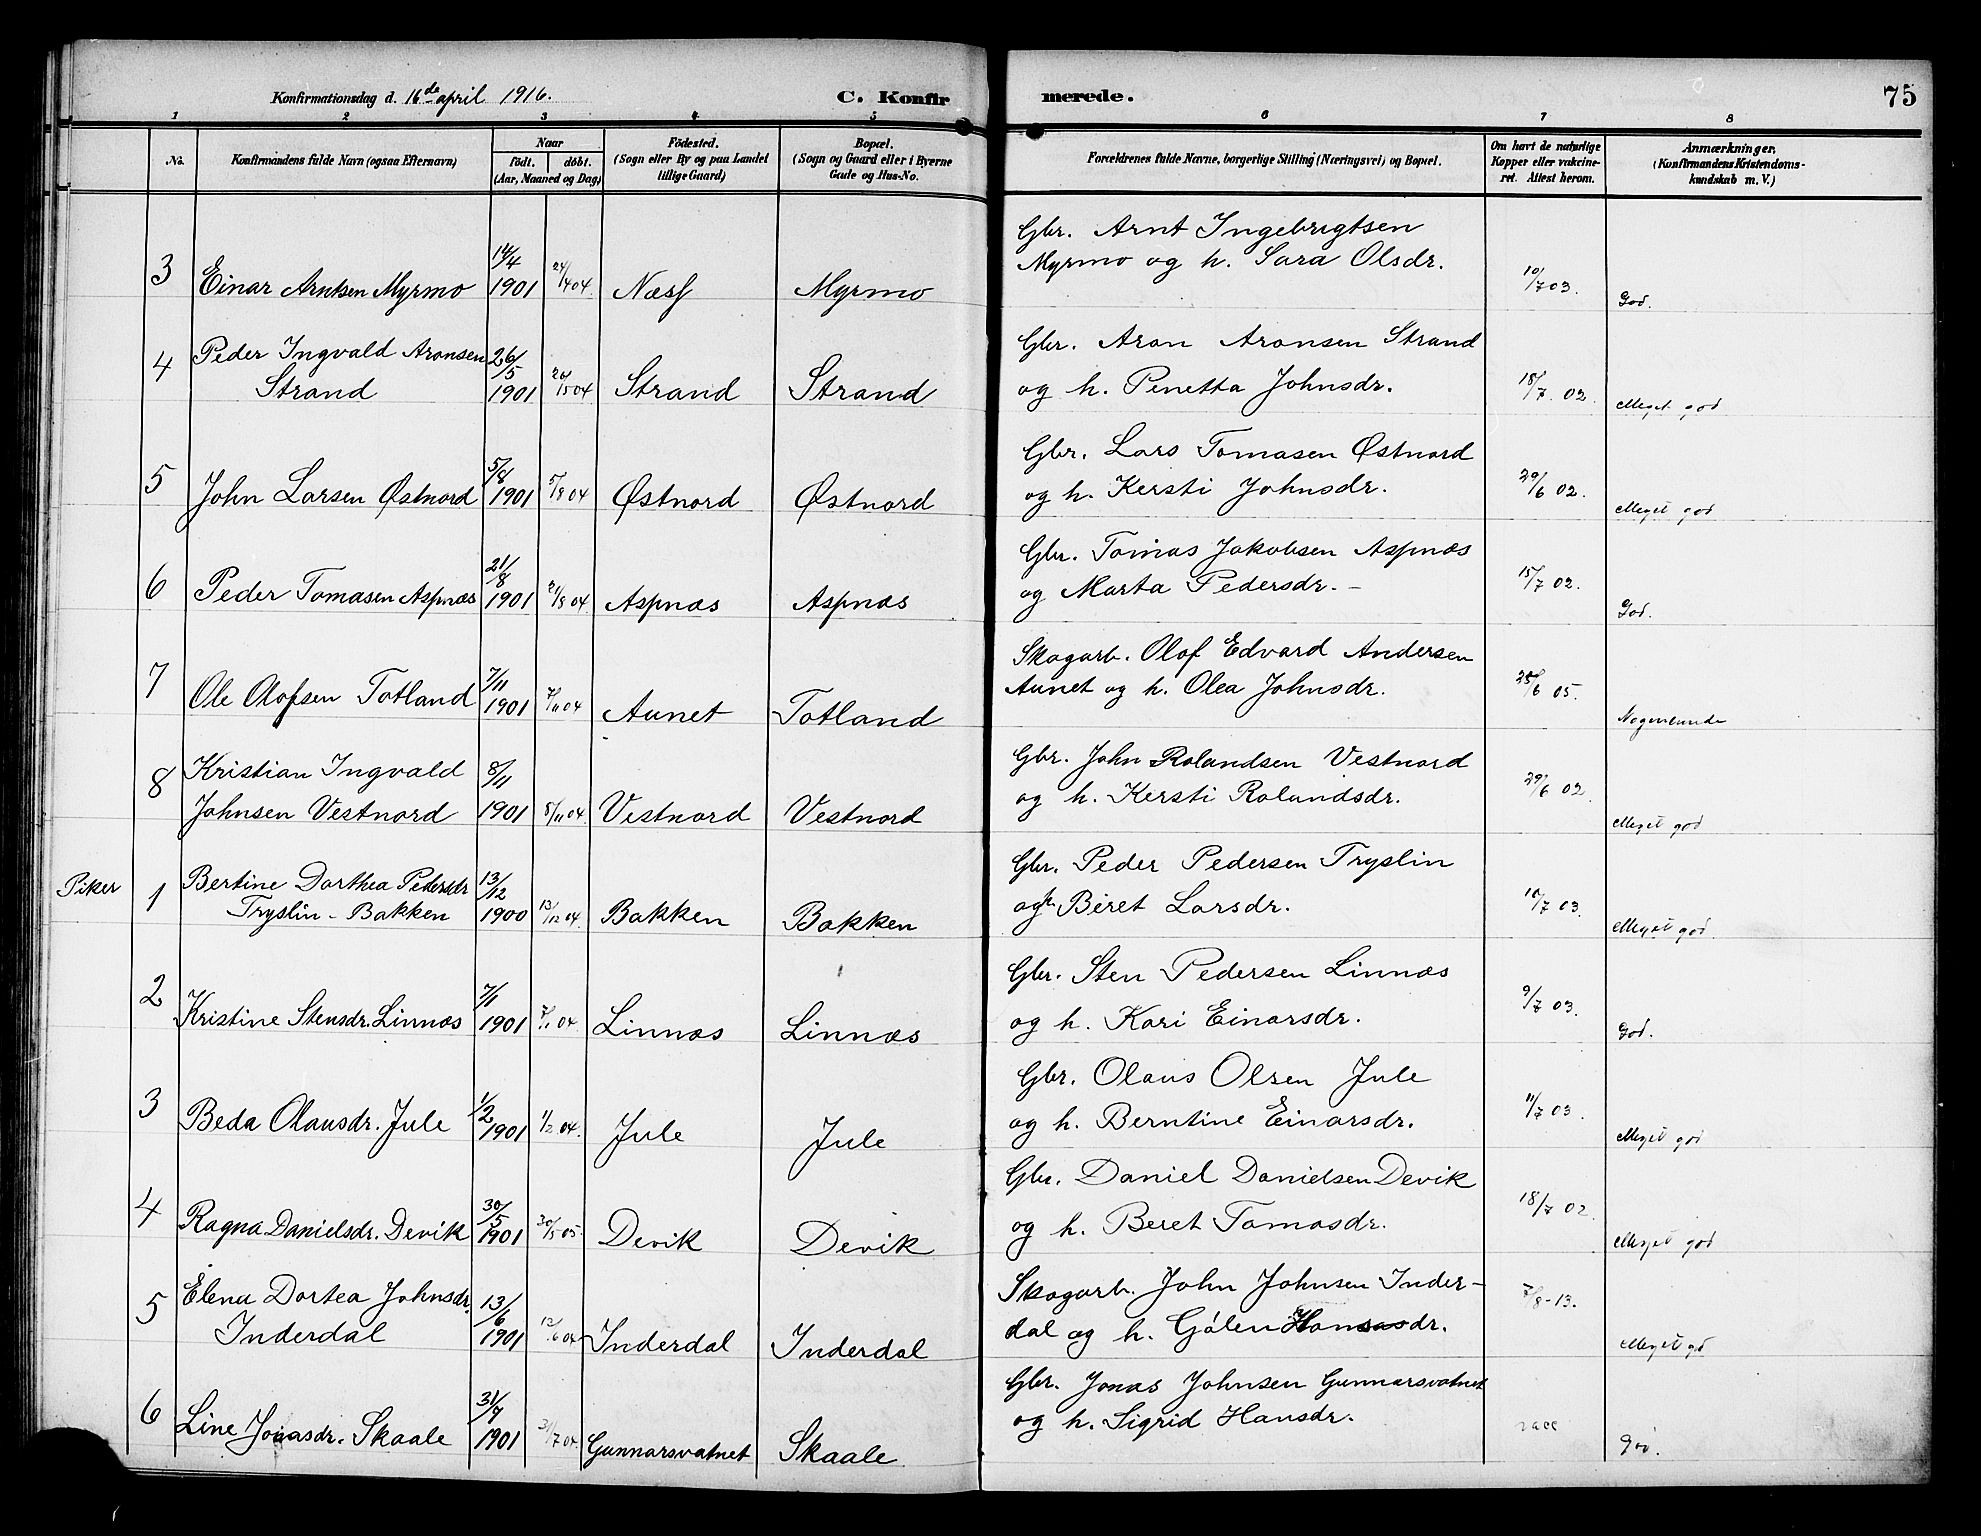 Konfirmationsdag d. 16de april 1916.
C. Konfirmerede.
75
1 2 3 4 5 6 7 8
No.
Konfirmandens fulde Navn (ogsaa Efternavn)
Naar
födt. döbt.
(Aar, Maaned og Dag)
Födested.
(Sogn eller By og paa Landet
tillige Gaard)
Bopæl.
(Sogn og Gaard eller i Byerne
Gade og Hus-No.
Forældrenes fulde Navne, borgerlige Stilling (Næringsvei) og Bopæl.
Om havt de naturlige
Kopper eller vakcine-
ret. Attest herom.
Anmærkninger,
(Konfirmandens Kristendoms-
kundskab m. V.)
Gbr. Arnt Ingebrigtsen
Myrmo og h. Sara Olsdr.
3 Einar Arntsen Myrmo 14/4 1901 24/4 04. Næss Myrmo 10/7 03. God.
4 Peder Ingvald Aronsen 26/5 Gbr. Aron Aronsen Strand
Strand 1901 26/5 04 Strand Strand og h. Penetta Johnsdr. 18/7 02. Meget god
Gbr. Lars Tomasen Østnord
5 John Larsen Østnord 5/8 1901 5/8 04 Østnord Østnord og h. Kersti Johnsdr. 29/6 02. Meget god
Gbr. Tomas Jakobsen Aspnæs
6 Peder Tomasen Aspnæs 21/8 1901 21/8 04 Aspnæs Aspnæs og Marta Pedersdr. - 15/7 02. God.
Skogarb. Olof Edvard Andersen
7 Ole Olofsen Totland 7/11 1901 7/11 04 Aunet Totland Aunet og h. Olea Johnsdr. 25/6 05. Nogenlunde
8 Kristian Ingvald 8/11 Gbr. John Rolandsen Vestnord
Johnsen Vestnord 1901 8/11 04. Vestnord Vestnord og h. Kersti Rolandsdr. 29/6 02. Meget god
Piker 1 Bertine Dorthea Petersdr 13/12 Gbr. Peder Pedersen Tryslin
Tryslin - Bakken 1900 13/12 04. Bakken Bakken og h. Beret Larsdr. 10/7 03. Meget god.
Gbr. Sten Pedersen Linnæs
2 Kristine Stensdr. Linnæs 7/1 1901 7/1 04. Linnæs Linnæs og h. Kari Einarsdr. 9/7 03. God.
Gbr. Olaus Olsen Jule
3 Beda Olausdr. Jule 1/2 1901 1/2 04. Jule Jule og h. Berntine Einarsdr. 11/7 03. Meget god
Gbr. Daniel Danielsen Devik
4 Ragna Danielsdr. Devik 30/5 1901 30/5 05. Devik Devik og h. Beret Tomasdr. 18/7 02. Meget god
5 Elena Dortea Johnsdr. 13/6 Skogarb. John Johnsen Inder-
Inderdal 1901 Inderdal Inderdal dal og h. Gølen dr. 7/8-13. Meget god
Gbr. Jonas Johnsen Gunnarsvatnet
6 Line Jonasdr. Skaale 31/7 1901 31/7 04. Gunnarsvatnet Skaale og h. Sigrid Hansdr. vacc God.